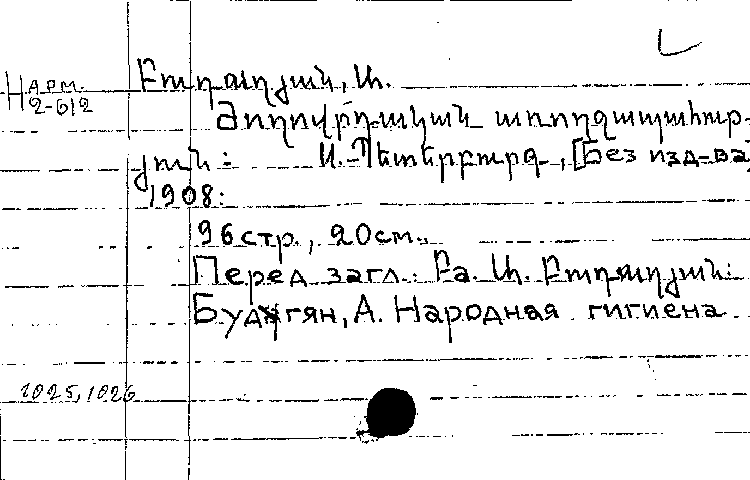 Нарм.
2-612
Բուդաղյան, Ա.
Ժողովրդական առողջապահու-
յուն: Ս.-Պետերբուրգ, [Без изд-ва],
1908:
96стр., 20см.,
Перед загл.: Բժ. Ա. Բուդաղյան:
Будагян, А. Народная гигиена
1025, 1026